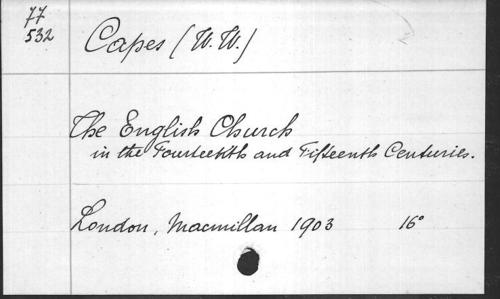 77
532
Capes (W. W.)
The English Church
in the Fourteenth and Fifteenth Centuries.
London, Macmillan 1903 16°